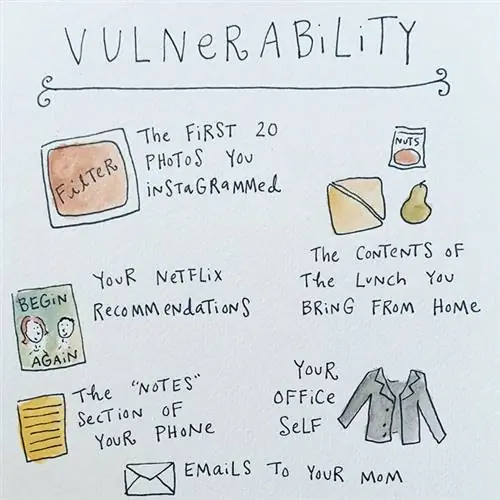 VULNERABILITY
FILTER
THE FIRST 20
PHOTOS YOU
INSTAGRAMMED
NUTS
THE CONTENTS OF
THE LUNCH YOU
BRING FROM HOME
BEGIN
AGAIN
YOUR NETFLIX
RECOMMENDATIONS
THE "NOTES"
SECTION OF
YOUR PHONE
YOUR
OFFICE
SELF
EMAILS TO YOUR MOM